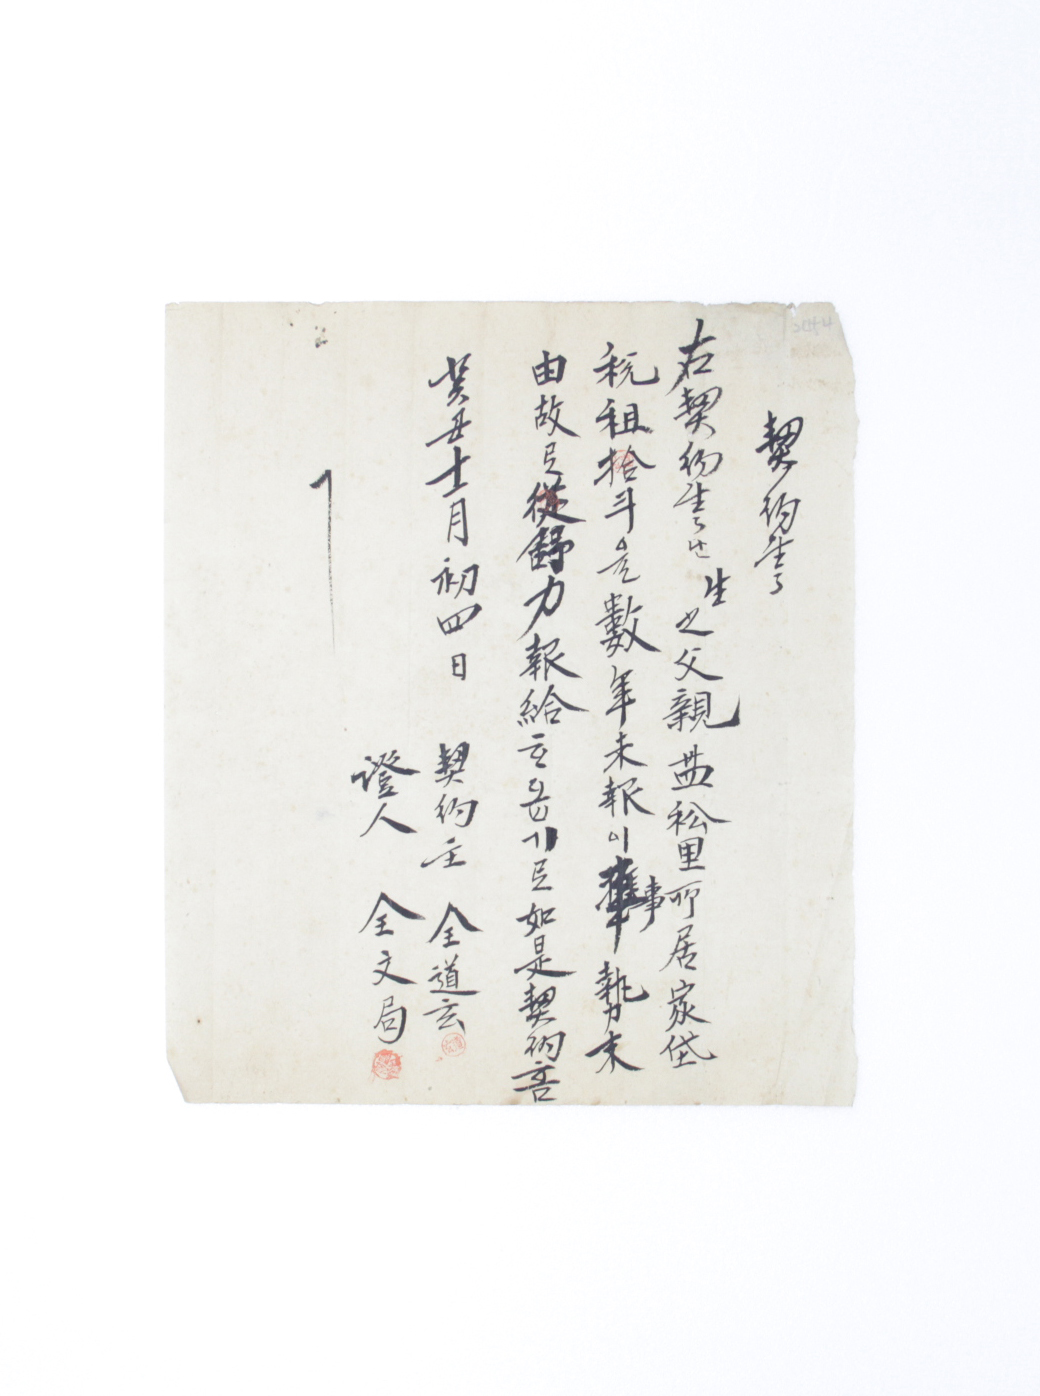 契約書
右契約書는 生之父親 盐松里所居家垈
稅租拾斗을 數年未報이 事勢末
由故로 從舒力報給立음기로 如是契約言
癸丑十一月初四日 契約主 全道玄
證人 全文局